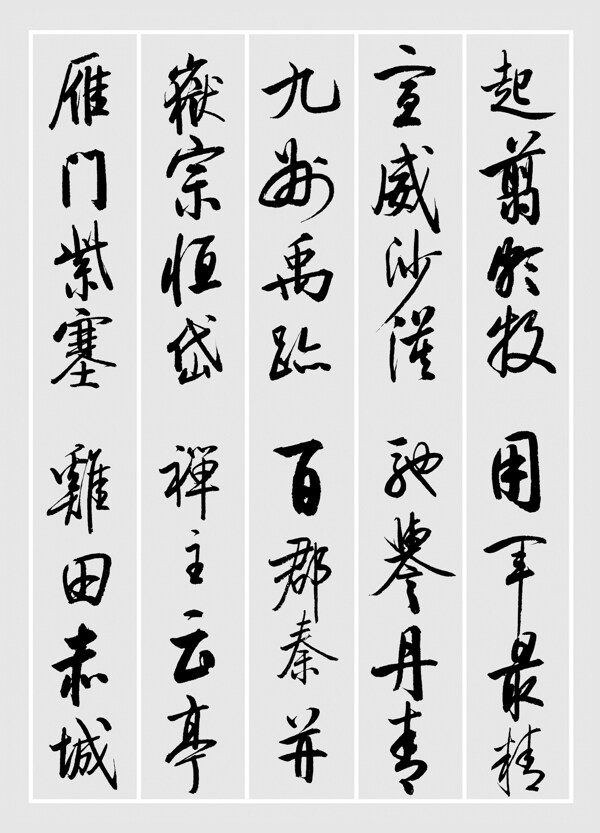 起翦頗牧 用軍最精
宣威沙漠 馳譽丹青
九州禹跡 百郡秦并
嶽宗恒岱 禪主云亭
雁門紫塞 雞田赤城